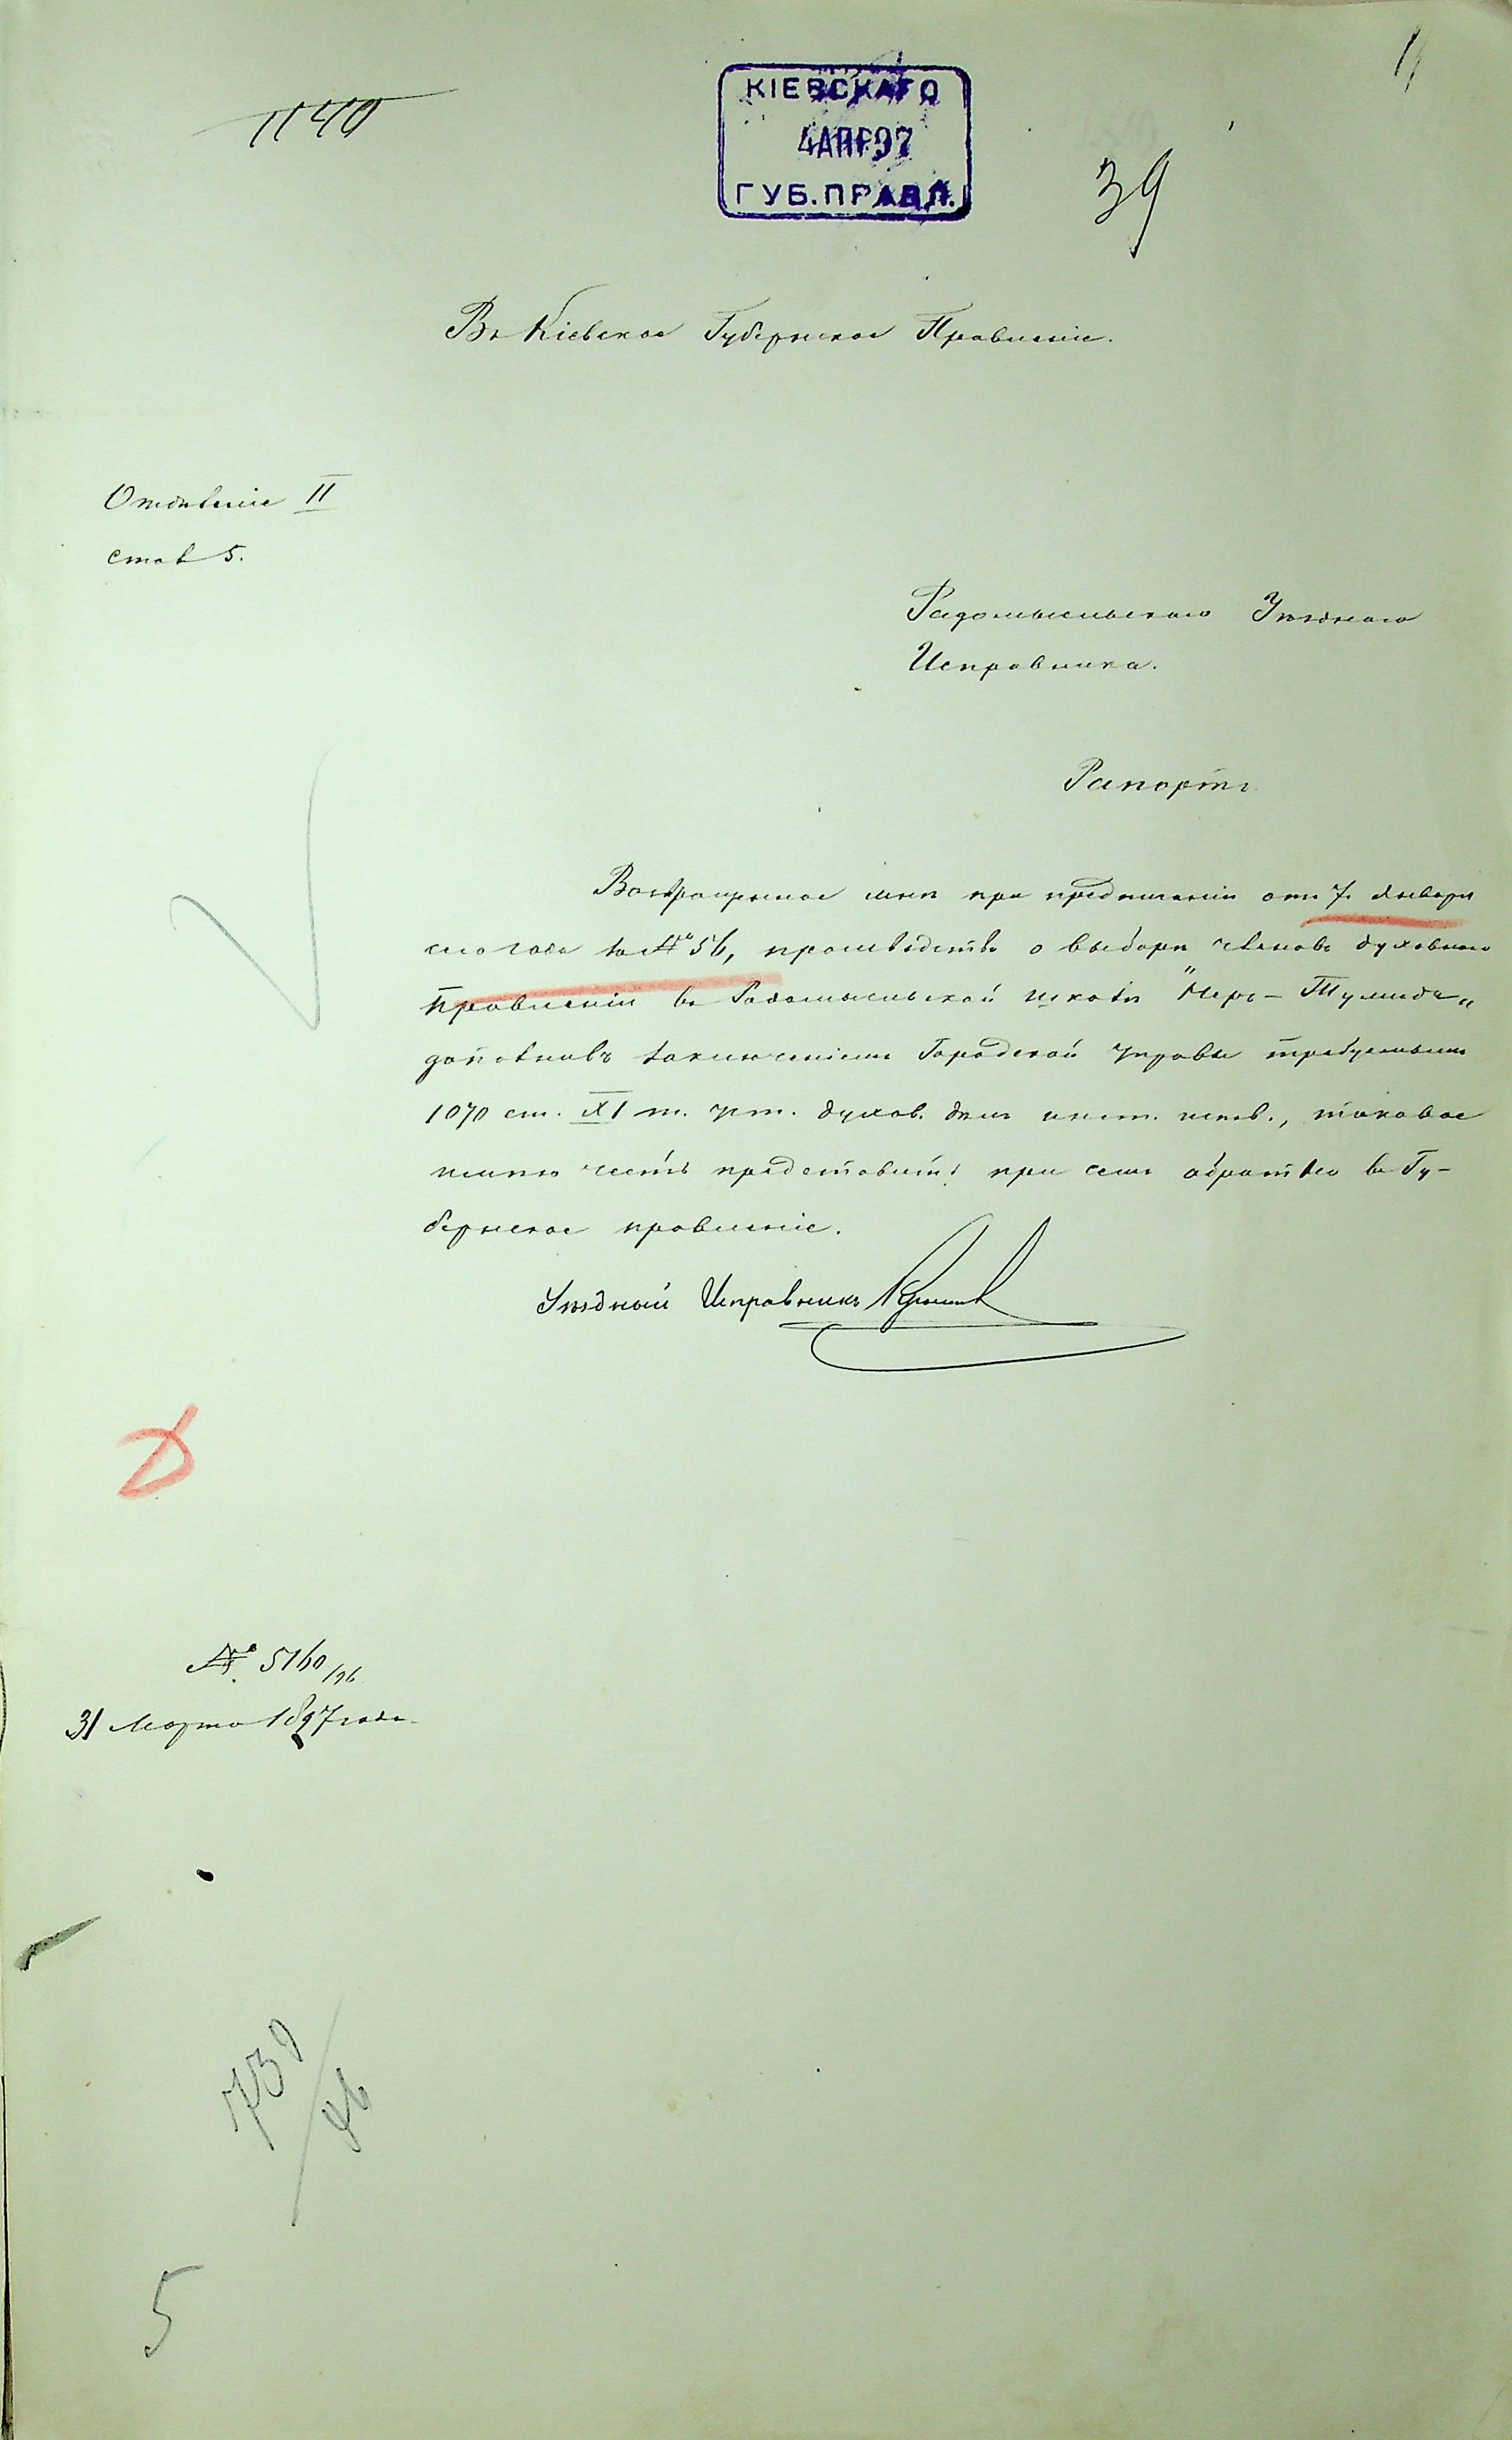 1140
КІЕВСКАГО
4 АПР 97
ГУБ. ПРАВЛ.
39
Въ Кіевское Губернское Правленіе.
Отдѣленіе II
стол 5.
Радомысльскаго Уѣзднаго
Исправника.
Рапортъ
Возвращенное мнѣ при предписаніи отъ 7 Января
сего года за № 56, производство о выборѣ членовъ духовнаго
правленія въ Радомысльской школѣ "Неръ-Тумидъ"
дополнивъ заключеніемъ Городской Управы требуемымъ
1070 ст. XI т. уст. духов. дѣлъ инст. испов., таковое
имѣю честь представить при семъ обратно въ Гу-
бернское правленіе.
Уѣздный Исправникъ
№ 5160/96
31 Марта 1897 года
739/96
5